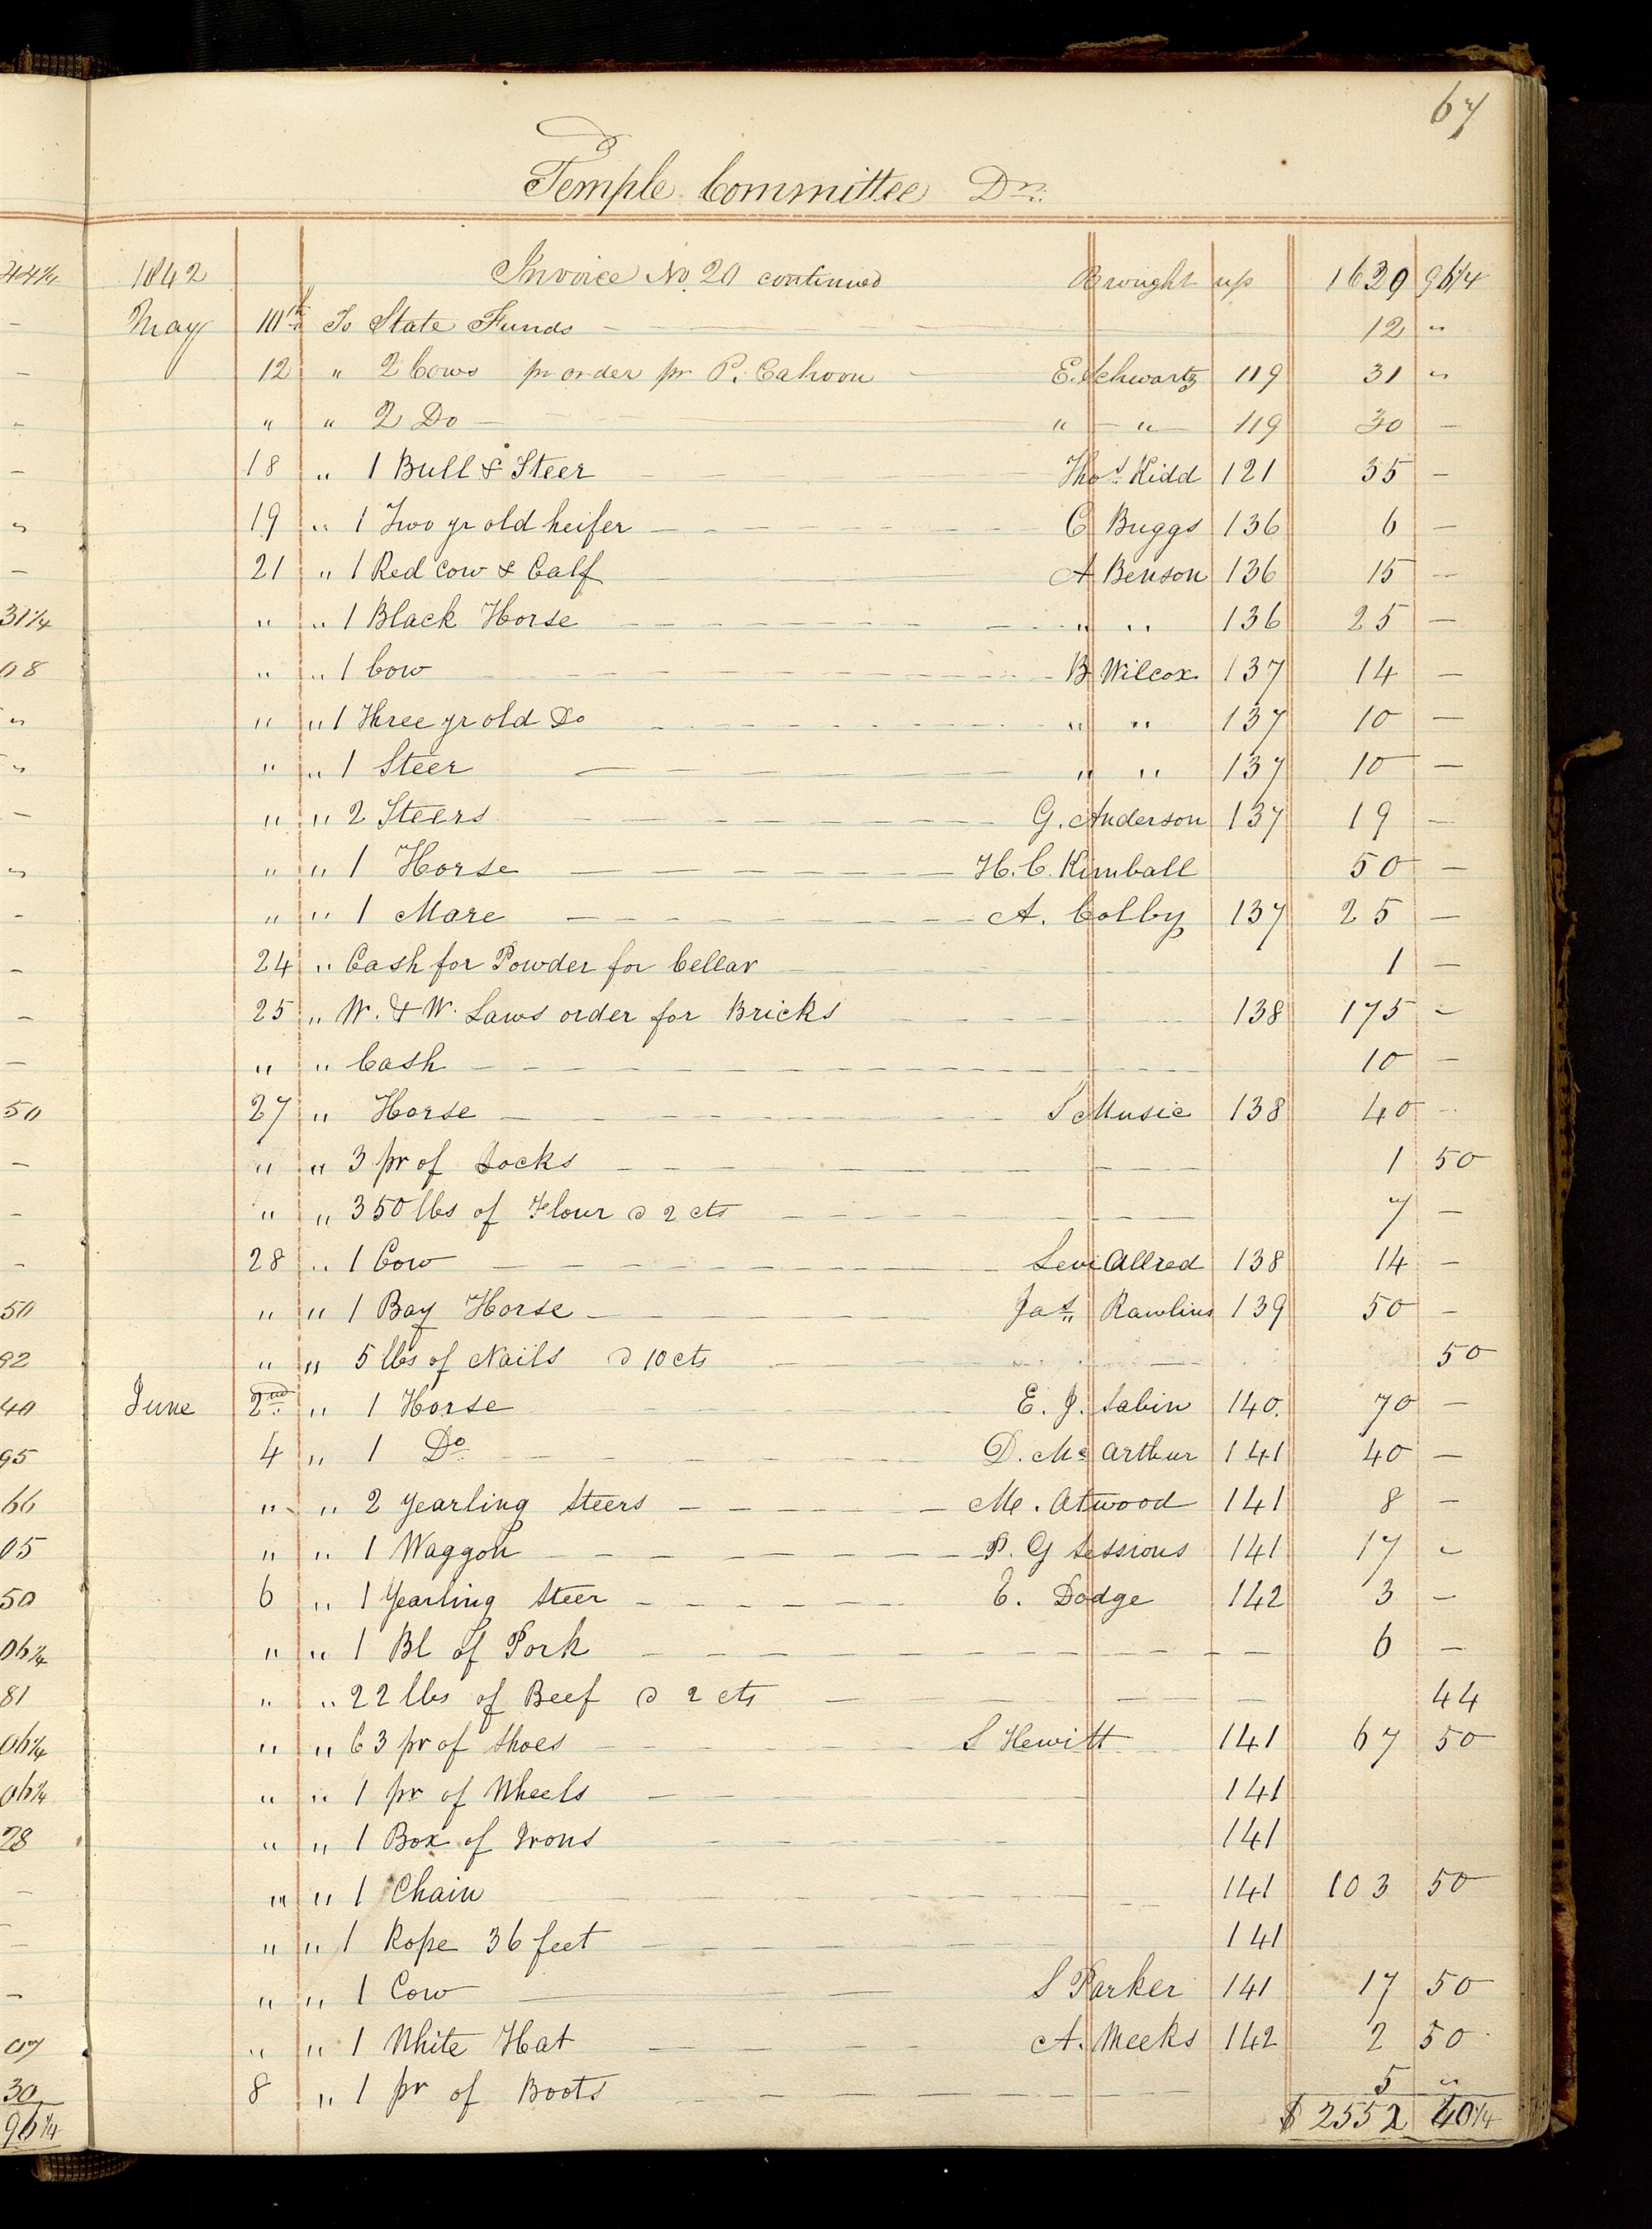 44¼
"
31¼
08
50
50
92
40
95
66
05
50
06¼
81
06¼
06¼
28
07
30
96¼
67
Temple Committee Dr.
1842 Invoice No. 20 continued Brought up 1629 96¼
May 10th. To State Funds — 12 "
12 " 2 Cows pr order pr P. Cahoon — E. Schwartz 119 31 "
" " 2 Do — " — " — 119 30 —
18 " 1 Bull & Steer — Thos. Kidd 121 35 —
19 " 1 Two yr old heifer — C Buggs 136 6 —
21 " 1 Red Cow & Calf — A Benson 136 15 —
" " 1 Black Horse — " " 136 25 —
" " 1 Cow — B Wilcox 137 14 —
" " 1 Three yr old Do — " " 137 10 —
" " 1 Steer — " " 137 10 —
" " 2 Steers — G. Anderson 137 19 —
" " 1 Horse — H. C. Kimball 50 —
" " 1 Mare — A. Colby 137 25 —
24 " Cash for Powder for Cellar — 1 —
25 " W. & W. Laws order for Bricks — 138 175 "
" " Cash — 10 —
27 " Horse — S Music 138 40 —
" " 3 pr of Socks — 1 50
" " 350 lbs of Flour @ 2 cts — 7 —
28 " 1 Cow — Levi Allred 138 14 —
" " 1 Bay Horse — Jas. Rawlins 139 50 —
" " 5 lbs of Nails @ 10 cts — 50
June 2nd. " 1 Horse — E. J. Sabin 140. 70 —
4 " 1 Do. — D. Mc Arthur 141 40 —
" " 2 Yearling Steers — Me. Atwood 141 8 —
" " 1 Waggon — P. G Sessions 141 17 "
6 " 1 Yearling Steer — E. Dodge 142 3 —
" " 1 Bl of Pork — 6 —
" " 22 lbs of Beef @ 2 cts — 44
" " 63 pr of Shoes — S Hewitt 141 67 50
" " 1 pr of Wheels — 141
" " 1 Box of Irons — 141
" " 1 Chain — 141 103 50
" " 1 Rope 36 feet — 141
" " 1 Cow — S Parker 141 17 50
" " 1 White Hat — A. Meeks 142 2 50
8 " 1 pr of Boots — 5 "
$ 2552 40¼